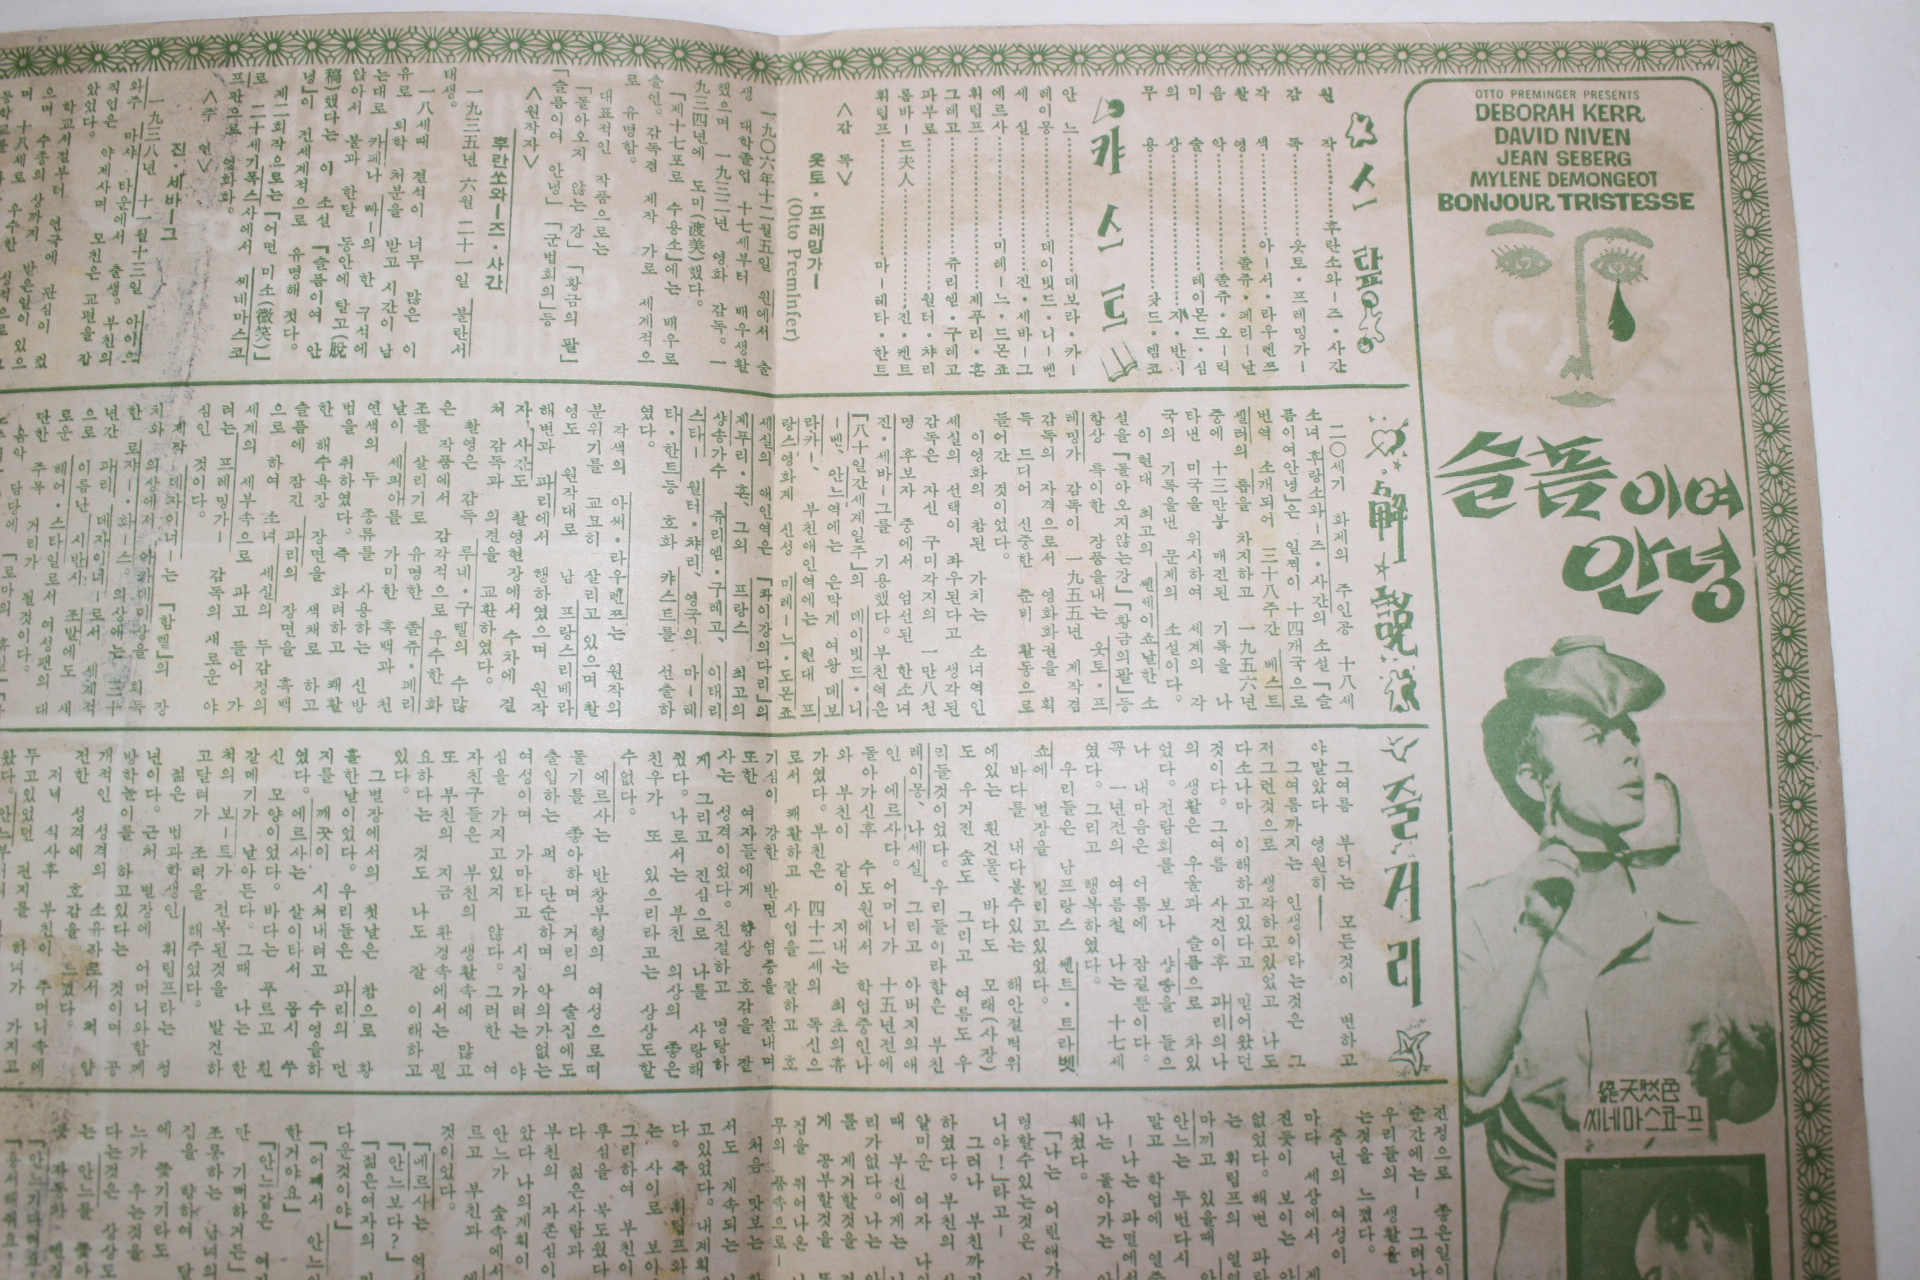 OTTO PREMINGER PRESENTS
DEBORAH KERR
DAVID NIVEN
JEAN SEBERG
MYLENE DEMONGEOT
BONJOUR TRISTESSE
슬픔이여
안녕
총천연색
씨네마스코프
스탶
원작……후란소와-즈·사간
감독……옷토·프레밍가-
각색……아-서·라우렌쯔
촬영……죨쥬·페리-날
음악……죨쥬·오-릭
미술……레이몬드·심
의상……지·반시
무용……꼿드·렘코
캬스드
안느……데보라·카-
레이몽……데이빗드·니-벤
세실……진·세바-그
에르사……미레-느·드몬죠
휘립프……제푸리·혼
그레고……쥬리엔·구레고
파부로……월터·챠리
롬바-드夫人……진·켄트
휘립프……마-레타·한트
<감독>
옷토·프레밍가-
(Otto Preminfer)
一九○六年十二월五일 원에서 출
생 대학졸업 十七세부터 배우생활
했으며 一九三二년 영화 감독。一
九三四년에 도미(渡美)했다。
「제十七포로 수용소」에는 배우로
출연。감독겸 제작 가로 세계적으
로 유명함。
대표적인 작품으로는
「돌아오지 않는 강」「황금의 팔」
「슬픔이여 안녕」「군법회의」등
<원작자>
후란쏘와-즈·사간
一九三五년 六월 二十一일 불란서
태생。
一八세때 결석이 너무 많은 이
유로 퇴학 처분을 받고 시간이 남
는대로 카페나 빠-의 한 구석에
앉아서 불과 한달 동안에 탈고(脫
稿)했다는 이 소설 「슬픔이여 안
녕」이 전세계적으로 유명해 졋다。
제二회작으로는 「어떤 미소(微笑)」
로 二十세기폭스사에서 씨네마스코
프판으로 영화화。
<주연>
진·세바-그
一九三八년 十一월十三일 아이오
와주 마샤 타운에서 출생。부친의
직업은 약제사며 모친은 교편을 잡
았었다。
학교시절부터 연극에 관심이 컸
으며 수종의 상까지 받은일이 있으
며 十八세로 우수한 성적으로
解說
二○세기 화제의 주인공 十八세
소녀 후랑소와-즈·사간의 소설 「슬
픔이여안녕」은 일찍이 十四개국으로
번역 소개되어 三十八주간 베스트
셀러의 톱을 차지하고 一九五六년
중에 十三만붕 매진된 기록을 나
타낸 미국을 위시하여 세계의 각
국의 기록을낸 문제의 소설이다。
이 현대 최고의 쎈세이쇼날한 소
설을 「돌아오지않는강」「황금의팔」등
항상 특이한 장품을내는 옷토·프
레밍가 감독이 一九五五년 제작겸
감독의 자격으로서 영화화권을 획
득 드디어 신중한 준비 활동으로
들어간 것이었다。
이영화의 참된 가치는 소녀역인
세실의 선택이 좌우된다고 생각된
감독은 자신 구미각지의 一만八천
명 후보자 중에서 엄선된 한소녀
진·세바-그를 기용했다。부친역은
「八十일간세계일주」의 데이빗드·니
-벤、안느역에는 은막계 여왕 데보
라카-、부친애인역에는 현대 프
랑스영화계 신성 미레-느·도몬죠
세실의 애인역은 「콰이강의다리」의
제푸리·혼、그외 프랑스 최고의
샹송가수 쥬리엠·구레고、이태리
스타- 월터·챠리、영국의 마-테
타·한트등 호화 캬스트를 선출하
였다。
각색의 아써·라우렌쯔는 원작의
분위기를 교묘히 살리고 있으며 촬
영도 원작대로 남 프랑스리베라
해변과 파리에서 행하였으며 원작
자、사간도 촬영현장에서 수차에 걸
쳐 감독과 의견을 교환하였다。
촬영은 감독 루네·구렐의 수많
은 작품에서 감각적으로 우수한 화
조를 살리기로 유명한 죨쥬·페리
날이 세피아를 가미한 흑백과 천
연색의 두 종류를 사용하는 신방
법을 취하였다。즉 화려하고 쾌활
한 해수욕장 장면을 색채로 하고
슬픔에 잠긴 파리의 장면을 흑백
으로 하여 소녀 세실의 두감정의
세계의 세부속으로 파고 들어 가
려는 프레밍가- 감독의 새로운 야
심인 것이다。
제작 데자이너-는 「함렛」의 장
치와 의상애서 아카데미상을 획득
한 로쟈-·화-스。의상애는 三十
년간 파리 데자이너-로서 세계적
으로 이름난 시반시 조발에도 새
로운 헤어·스타일로서 여성팬의 대
단한 주목 거리가 될것이다。
음악 담당에 「로마의 휴일」
줄거리
그여름 부터는 모든것이 변하고
야말았다 영원히——
그여름까지는 인생이라는것은 그
저그런것으로 생각하고있었고 나도
다소나마 이해하고있다고 믿어왔던
것이다。그여름 사건이후 파리의나
의 생활은 우울과 슬픔으로 차있
었다。전람회를 보나 샹송을 들으
나 내마음은 어름에 잠길뿐이다。
꼭 一년전의 여름철 나는 十七세
였다。그리고 행복하였다。
우리들은 남프랑스 쎈트·트라벳
쇠에 별장을 빌리고있었다。
바다를 내다볼수있는 해안절벽위
에있는 흰건물、바다도 모래(사장)
도 우거진 숲도 그리고 여름도 우
리들것이었다。우리들이라함은 부친
레이몽、나세실、그리고 아버지의애
인 에르사다。어머니가 十五년전에
돌아가신후 수도원에서 학업중인나
와 부친이 같이 지내는 최초의휴
가였다。부친은 四十二세의 독신으
로서 쾌활하고 사업을 잘하고 호
기심이 강한 반면 염증을 잘내며
또한 여자들에게 향상 호감을 잔
사는 성격이었다。친절하고 명랑하
게 그리고 진심으로 나를 사랑해
줬다。나로서는 부친 의상의 좋은
친우가 또 있으리라고는 상상도할
수없다。
에르사는 반창부형의 여성으로떠
돌기를 좋아하며 거리의 술집에도
출입하는 퍽 단순하며 악의가없는
여성이며 가마타고 시집가려는 야
심을 가지고있지 않다。그러한 여
자친구들은 부친의 생활속에 많고
또 부친의 지금 환경속에서는 필
요하다는 것도 나도 잘 이해하고
있다。
그별장에서의 첫날은 참으로 황
홀한날이었다。우리들은 파리의 먼
지를 깨끗이 시쳐내려고 수영을하
였다。에르사는 살이타서 몹시 쑤
신 모양이었다。바다는 푸르고 흰
갈메기가 날아든다 그때 나는 한
척의 보-트가 전복된것을 발견하
고달려가 조력을 해주었다。
젊은 법과학생인 휘립프라는 청
년이다。근처 별장에 어머니와함께
방학놀이를 하고있다는 것이며 공
개적인 성격의 소유자로서 퍼 얌
전한 성격에 호감을 느꼈다。
저녁 식사후 부친이 주머니속에
두고있었던 편지를 하녀가 가지고
왔다。안느부터의
진정으로 좋은일이
순간에는- 그러나
우리들의 생활을
는것을 느꼈다。
중년의 여성이
마다 세상에서
전듯이 보이는
없었다。해변
는 휘립프의
마끼고 있을때
안느는 두번다시
말고 학업에 열중
-나는 과면에서
나는 돌아가는
웨쳤다。
「나는 어린애가
령할수있는것은
니야!」라고-
그러나 부친까지
하였다。부친의
얄미운 여자
때 부신에게는
리가없다。나는
를 제거할것을
게 공부할것을
집을 뛰어나온
무의 풍속으로-
처음 맛보는
서도 계속되는
고있었다。내계획
다。즉 휘립프와
는 사이로 보아
그리하여 부친이
루심을 북도웠다
다 젊은사람과
부친의 자존심이
았다 나의계획이
안느가 숲속에서
르고 부친과
것이었다。
「에르사는
「안느보다?」
「젊은여자의
다운것이야」
「어째서 안느
한거야요」
「안느같은 여자
만 기뻐하거든」
조롱하는 남녀의
집을 향하여
에 쫓기기라도
느가 우는것을
다는것은 상상도
는 안느를 쫓아